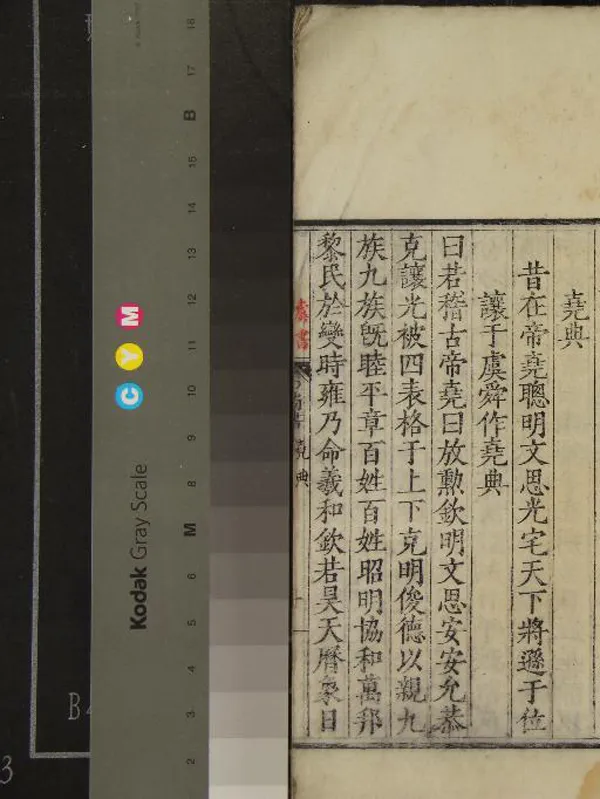 堯典
昔在帝堯聰明文思光宅天下將遜于位
讓于虞舜作堯典
曰若稽古帝堯曰放勲欽明文思安安允恭
克讓光被四表格于上下克明俊德以親九
族九族旣睦平章百姓百姓昭明協和萬邦
黎民於變時雍乃命羲和欽若昊天曆象日
虞書
堯典
Kodak Gray Scale
C Y M
2 3 4 5 6 M 8 9 10 11 12 13 14 15 B 17 18
B4
3